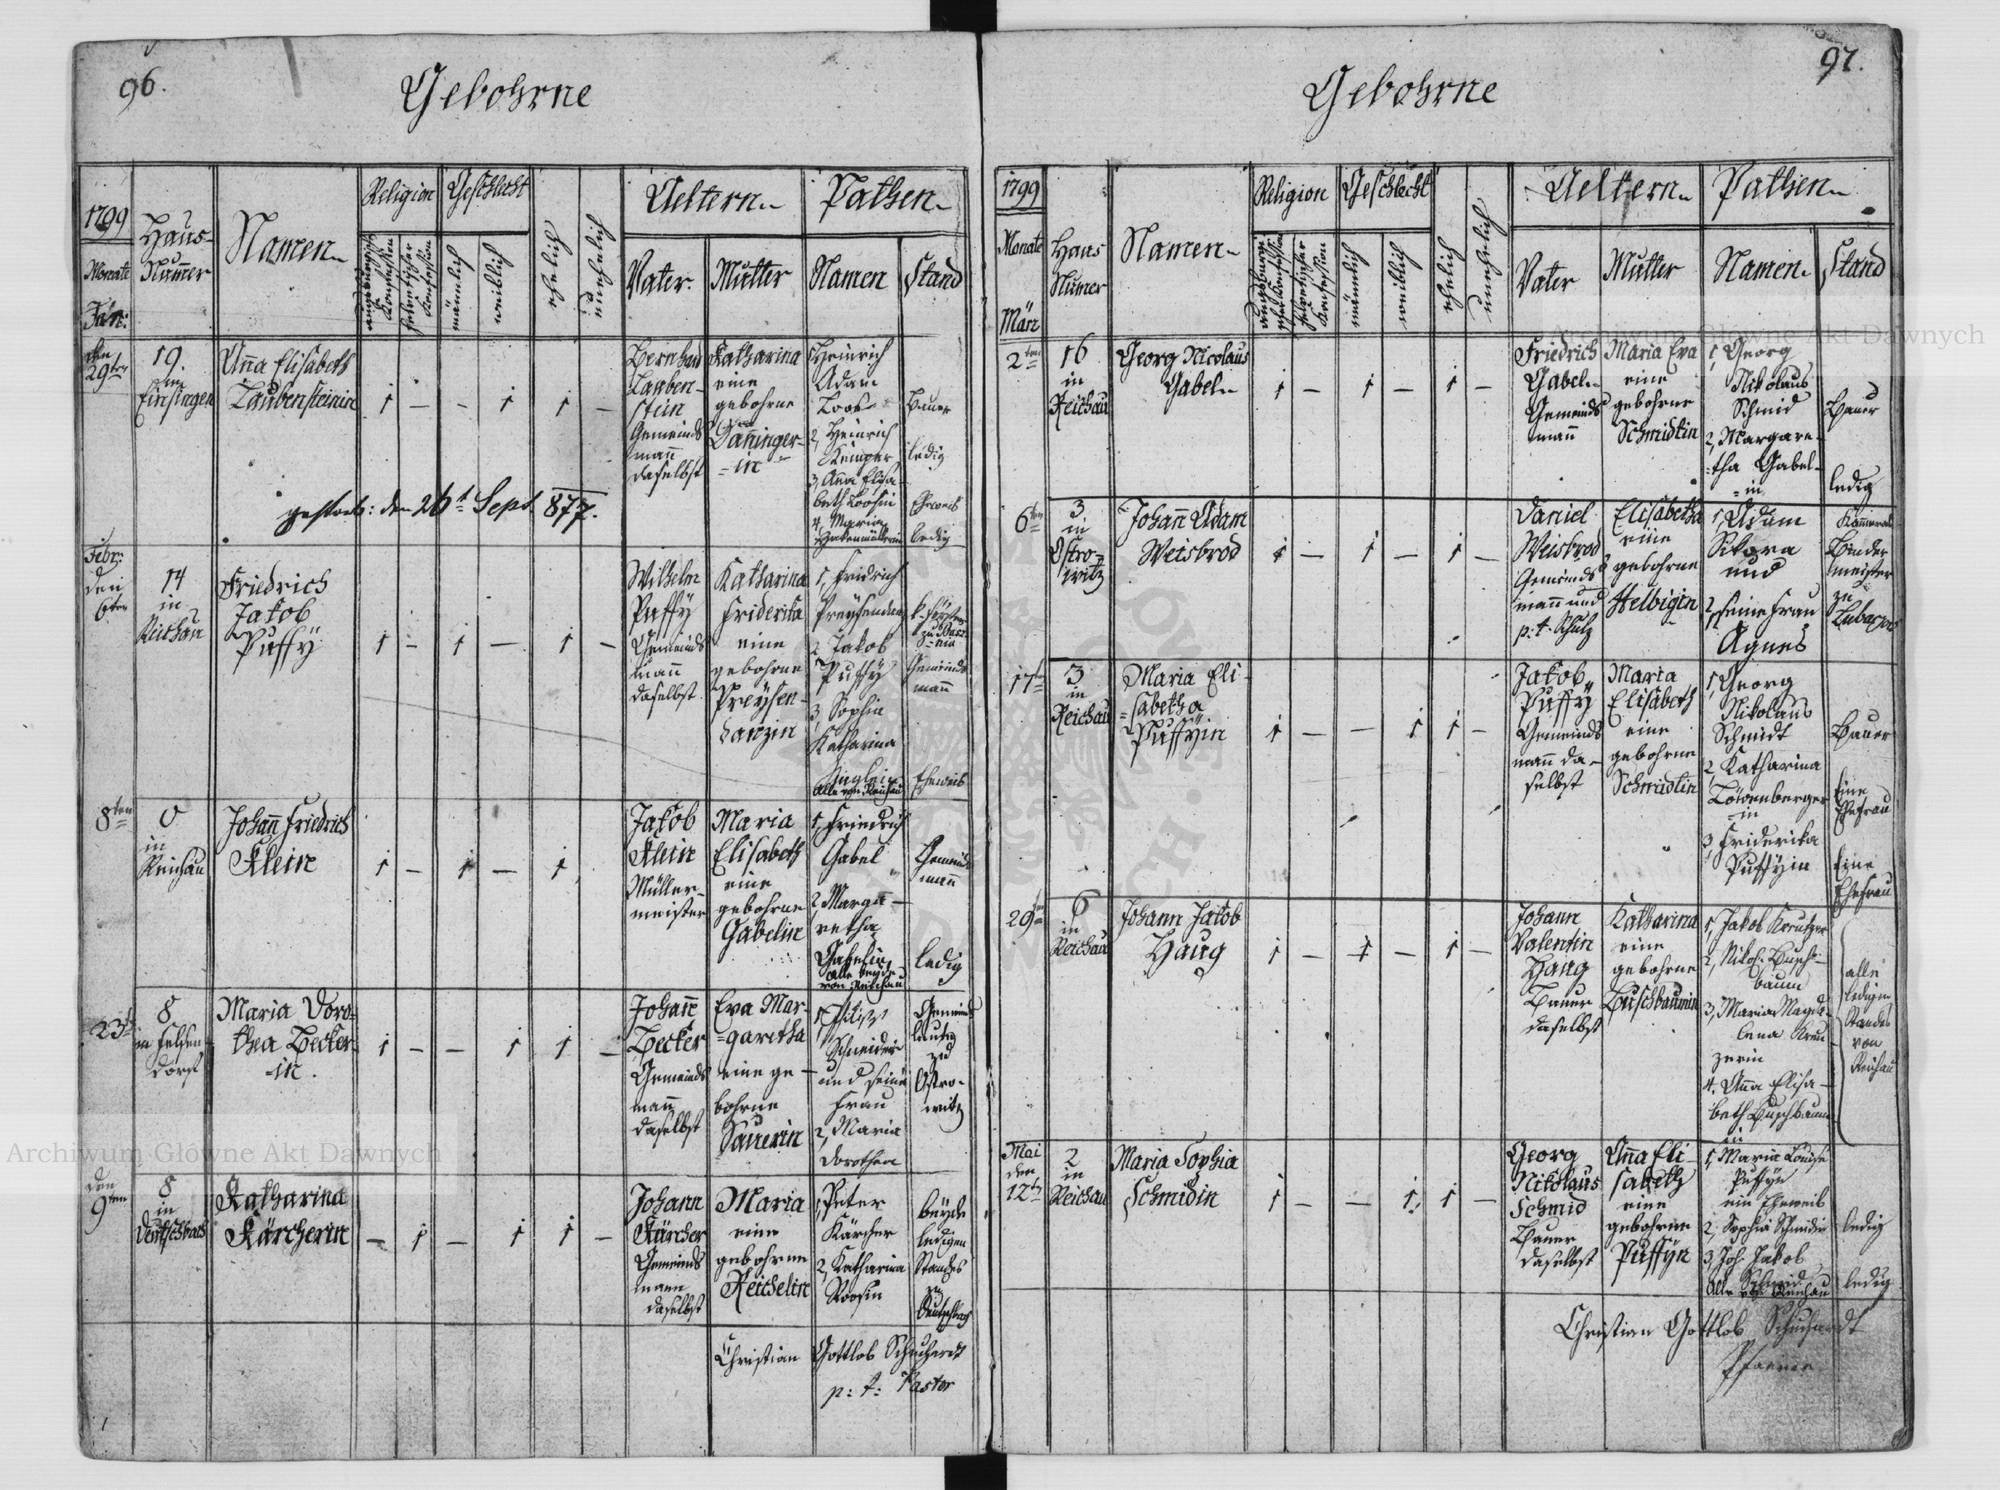 96.
Gebohrne
1799
Monate
Jän:
Haus-
Num̄er
Namen
Religion
augsburgische
Confession
helvetischer
Confession
Geschlecht
männlich
weiblich
ehelich
unehelich
Aeltern
Vater
Mutter
Pathen
Namen
Stand
den
29ten
19.
in
Einsingen
Anna Elisabeth
Laubensteinin
1 — — 1 1 —
Bernhard
Lauben-
stein
Gemeinds
mann
daselbst
Katharina
eine
gebohrne
Dan̄inger-
=in
1, Heinrich
Adam
Loos
2, Heinrich
Kemper
3, Ana Elisa-
beth Loosin
4, Maria
Bauer
ledig
Eheweib
ledig
gestorb: den 26t Sept. 877.
Febr:
den
6ten
14
in
Reichau
Friedrich
Jakob
Puffÿ
1 — 1 — 1 —
Wilhelm
Puffÿ
Gemeinds
mann
daselbst
Katharina
Friderika
eine
gebohrne
Preÿsen-
danzin
1, Fridrich
Preÿsendanz
2, Jakob
Puffÿ
3, Sophia
Katharina
Alle von Reichau
k. Förster
Gemeinds
mann
Eheweib
8ten
0
in
Reichau
Johan̄ Friedrich
Klein
1 — 1 — 1
Jakob
Klein
Müller-
meister
Maria
Elisabeth
eine
gebohrne
Gabelin
1, Friedrich
Gabel
2, Marga-
retha
Gabelin
alle beyde
von Reichau
Gemeinds
mann
ledig
23t
8
in Felsen-
dorf
Maria Doro-
thea Becker-
in.
1 — — 1 1 —
Johan̄
Becker
Gemeinds
mann
daselbst
Eva Mar-
=garetha
eine ge-
bohrne
Sauerin
Schneider
und seine
Frau
2, Maria
Dorothea
Gemeinds
leute
zu
Ostro-
witz
den
9ten
8
in
Deutschbach
Katharina
Kärcherin
— 1 — 1 1 —
Johann
Kärcher
Gemeinds
mann
daselbst
Maria
eine
gebohrne
Reichelin
1, Peter
Kärcher
2, Katharina
Roosin
beÿde
ledigen
Standes
zu
Deutschbach
Christian Gottlob Schuhardt
p: t: Pastor
97.
Gebohrne
1799
Monate
März
Haus
Numer
Namen
Religion
augsburgi
sche Confession
helvetischer
Confession
Geschlecht
männlich
weiblich
ehelich
unehelich
Aeltern
Vater
Mutter
Pathen
Namen
Stand
2ten
16
in
Reichau
Georg Nicolaus
Gabel
1 — 1 — 1 —
Friedrich
Gabel
Gemeinds
mann
Maria Eva
eine
gebohrne
Schmidtin
1, Georg
Nikolaus
Schmid
2, Margare-
=tha Gabel-
=in
Bauer
ledig
6ten
3
in
Ostro-
witz
Johan̄ Adam
Weisbrod
1 — 1 — 1 —
Daniel
Weisbrod
Gemeinds
mann und
p: t. Schulz
Elisabetha
eine
gebohrne
Helbigin
1, Adam
Sikora
und
2, seine Frau
Agnes
Kammeral
Binder
meister
zu
Lubaczow
17t
3
in
Reichau
Maria Eli-
=sabetha
Puffÿin
1 — — 1 1 —
Jakob
Puffÿ
Gemeinds
mann da-
selbst
Maria
Elisabeth
eine
gebohrne
Schmidtin
1, Georg
Nikolaus
Schmidt
2, Katharina
Löwenberger
in
3, Friderika
Puffÿin
Bauer
Eine
Ehefrau
Eine
Ehefrau
29ten
6
in
Reichau
Johann Jakob
Haug
1 — 1 — 1 —
Johann
Valentin
Haug
Bauer
daselbst
Katharina
eine
gebohrne
Buschbaumin
1, Jakob Kreutzer
2, Nikol: Busch-
baum
3, Maria Magda-
lena Kreu-
zerin
4. Ana Elisa-
beth Buschbaum
in
alle
ledigen
Standes
von
Reichau
Mai
den
12ten
2
in
Reichau
Maria Sophia
Schmidin
1 — — 1 1 —
Georg
Nikolaus
Schmid
Bauer
daselbst
Anna Eli
sabeth
eine
gebohrne
Puffÿn
1, Maria Louise
Puffÿn
ein Eheweib
2, Sophia Schneider
3, Joh. Jakob
Schmid
Alle von Reichau
ledig
ledig
Christian Gottlob Schuhardt
Pfarrer
Archiwum Główne Akt Dawnych
Archiwum Główne Akt Dawnych